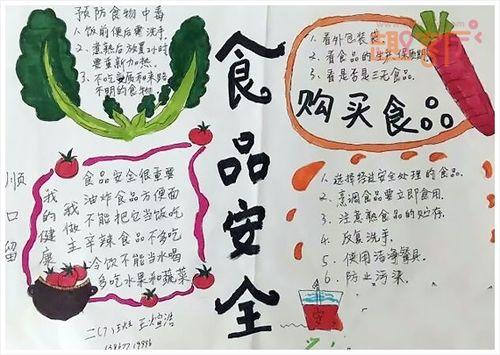 预防食物中毒
1、饭前便后要洗手。
2、煮熟后放置2小时
要重新加热。
3、不吃变质和来路
不明的食物。
食品安全
1、看外包装袋
2、看食品的生产保质期
3、看是否是三无食品。
购买食品
顺口留
我的健康
我做主
食品安全很重要
油炸食品方便面
不能把它当饭吃
辛辣食品不多吃
冷饮不能当水喝
多吃水果和蔬菜
1、选择经过安全处理的食品。
2、烹调食品要立即食用。
3、注意熟食品的贮存。
4、反复洗手。
5、使用洁净餐具。
6、防止污染。